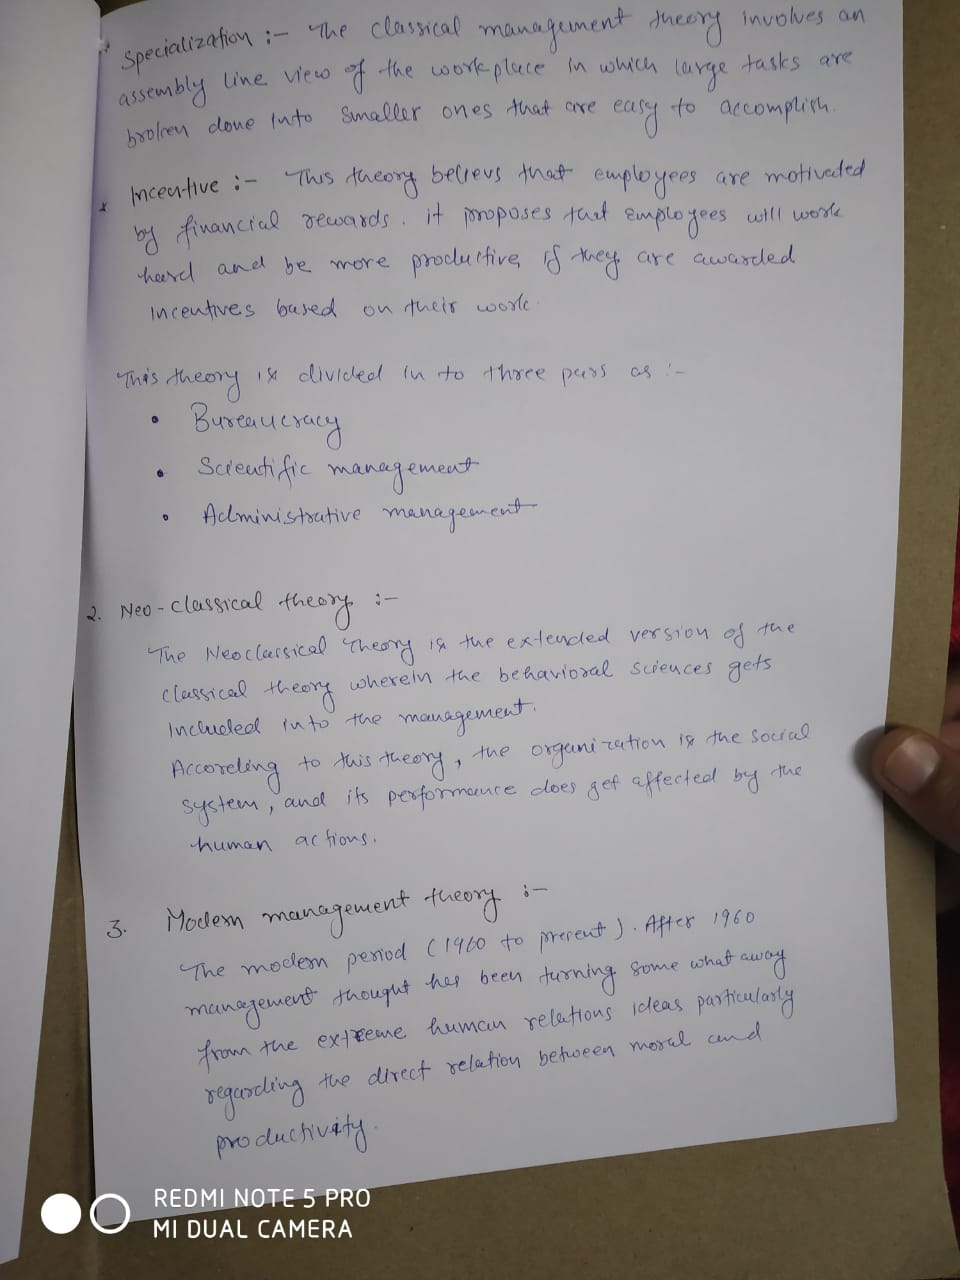 * Specialization :- The classical management theory involves an
assembly line view of the workplace in which large tasks are
broken done into smaller ones that are easy to accomplish.
* Incentive :- This theory believs that employees are motivated
by financial rewards. it proposes that employees will work
hard and be more productive if they are awarded
incentives based on their work.
This theory is divided in to three pars as :-
• Bureaucracy
• Scientific management
• Administrative management
2. Neo-classical theory :-
The Neoclassical Theory is the extended version of the
classical theory wherein the behavioral sciences gets
included into the management.
According to this theory, the organization is the social
system, and its performance does get affected by the
human actions.
3. Modern management theory :-
The modern period (1960 to present). After 1960
management thought has been turning some what away
from the extreme human relations ideas particularly
regarding the direct relation between moral and
productivity.
REDMI NOTE 5 PRO
MI DUAL CAMERA